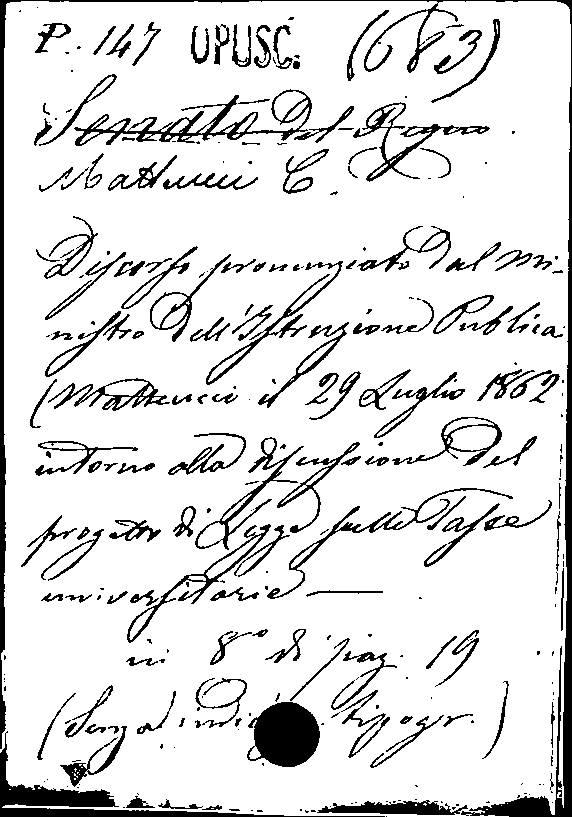 P. 147 OPUSC. (683)
Senato del Regno
Matteucci C.
Discorso pronunziato dal Mi-
nistro dell'Istruzione Publica
(Matteucci il 29 Luglio 1862
intorno alla discussione del
progetto di Legge sulle Tasse
universitarie —
in 8° di pag. 19
(Senza tipogr.)